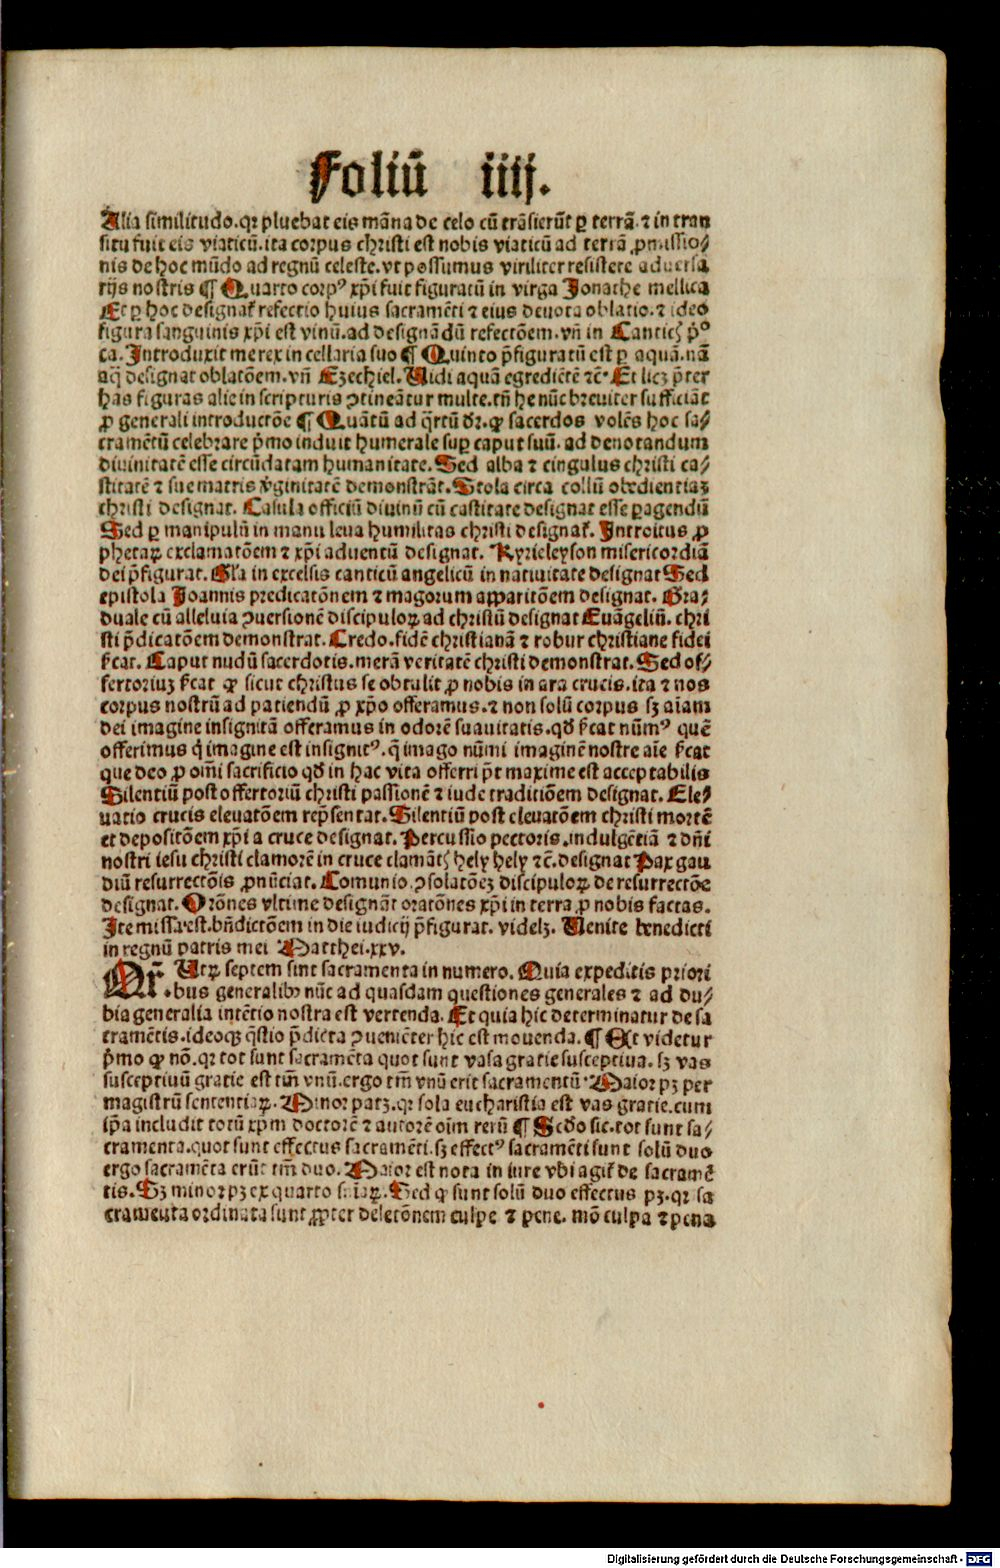 Foliū iiij.
Alia similitudo. qꝛ pluebat eis māna de celo cū trāsierūt ꝑ terrā. ⁊ in tran
situ fuit eis viaticū. ita corpus christi est nobis viaticū ad terrā ꝓmissio⸗
nis de hoc mūdo ad regnū celeste. vt possumus viriliter resistere aduersa
rijs nostris ¶ Quarto corpꝰ xp̄i fuit figuratū in virga Jonathe mellica
Et ꝑ hoc designat̄ refectio huius sacramēti ⁊ eius deuota oblatio. ⁊ ideo
figura sanguinis xp̄i est vinū. ad designādū refectōem. vn̄ in Canticꝭ p̄ᵒ
ca. Introduxit me rex in cellaria suo ¶ Quinto p̄figuratū est ꝑ aquā. nā
aq̄ designat oblatōem. vn̄ Ezechiel. Uidi aquā egrediētē ⁊c̄. Et licꝫ p̄ter
has figuras alie in scripturis ꝯtineātur multe. tn̄ he nūc breuiter sufficiāt
ꝓ generali introductōe ¶ Quātū ad q̄rtū dr̄. ꝙ sacerdos volēs hoc sa⸗
cramētū celebrare p̄mo induit humerale suꝑ caput suū. ad denotandum
diuinitatē esse circūdatam humanitate. Sed alba ⁊ cingulus christi ca⸗
stitatē ⁊ sue matris v̄ginitatē demonstrāt. Stola circa collū obedientiaꝫ
christi designat. Casula officiū diuinū cū castitate designat esse ꝑagendū
Sed ꝑ manipulū in manu leua humilitas christi designat̄. Introitus ꝓ
phetaꝝ exclamatōem ⁊ xp̄i aduentū designat. Kyrieleyson misericordiā
dei p̄figurat. Gl̄a in excelsis canticū angelicū in natiuitate designat Sed
epistola Joannis predicatōnem ⁊ magorum apparitōem designat. Gra⸗
duale cū alleluia ꝯuersionē discipuloꝝ ad christū designat Euāgeliū. chri
sti p̄dicatōem demonstrat. Credo. fidē christianā ⁊ robur christiane fidei
s̄cat. Caput nudū sacerdotis. merā veritatē christi demonstrat. Sed of⸗
fertoriuꝫ s̄cat ꝙ sicut christus se obtulit ꝓ nobis in ara crucis. ita ⁊ nos
corpus nostrū ad patiendū ꝓ xp̄o offeramus. ⁊ non solū corpus sꝫ aīam
dei imagine insignitā offeramus in odorē suauitatis. qd̄ s̄cat nūmꝰ quē
offerimus q̄ imagine est insignitꝰ. q̄ imago nūmi imaginē nostre aīe s̄cat
que deo ꝓ om̄i sacrificio qd̄ in hac vita offerri p̄t maxime est acceptabilis
Silentiū post offertoriū christi passionē ⁊ iude traditiōem designat. Ele⸗
uatio crucis eleuatōem rep̄sentat. Silentiū post eleuatōem christi mortē
et depositōem xp̄i a cruce designat. Percussio pectoris. indulgētiā ⁊ dn̄i
nostri iesu christi clamorē in cruce clamātꝭ hely hely ⁊c̄. designat Pax gau
diū resurrectōis ꝓnūciat. Comunio. ꝯsolatōeꝫ discipuloꝝ de resurrectōe
designat. Orōnes vltime designāt oratōnes xp̄i in terra ꝓ nobis factas.
Ite missa est. bn̄dictōem in die iudicij p̄figurat. videlꝫ. Uenite benedicti
in regnū patris mei Matthei. xxv.
Qr̄. Utꝝ septem sint sacramenta in numero. Quia expeditis priori
bus generalibꝰ nūc ad quasdam questiones generales ⁊ ad du⸗
bia generalia intētio nostra est vertenda. Et quia hic determinatur de sa
cramētis. ideoqꝫ q̄stio p̄dicta ꝯueniēter hic est mouenda. ¶ Et videtur
p̄mo ꝙ nō. qꝛ tot sunt sacramēta quot sunt vasa gratie susceptiua. sꝫ vas
susceptiuū gratie est tm̄ vnū. ergo tm̄ vnū erit sacramentū. Maior pꝫ per
magistrū sententiaꝝ. Minor patꝫ. qꝛ sola eucharistia est vas gratie. cum
ip̄a includit totū xp̄m doctorē ⁊ autorē oīm rerū ¶ Scd̄o sic. tot sunt sa⸗
cramenta. quot sunt effectus sacramēti. sꝫ effectꝰ sacramēti sunt solū duo
ergo sacramēta erūt tm̄ duo. Maior est nota in iure vbi agit̄ de sacramē
tis. Sꝫ minor pꝫ ex quarto sn̄iaꝝ. Sed ꝙ sunt solū duo effectus pꝫ. qꝛ sa
cramenta ordinata sunt ꝓpter deletōnem culpe ⁊ pene. mō culpa ⁊ pena
Digitalisierung gefördert durch die Deutsche Forschungsgemeinschaft - DFG